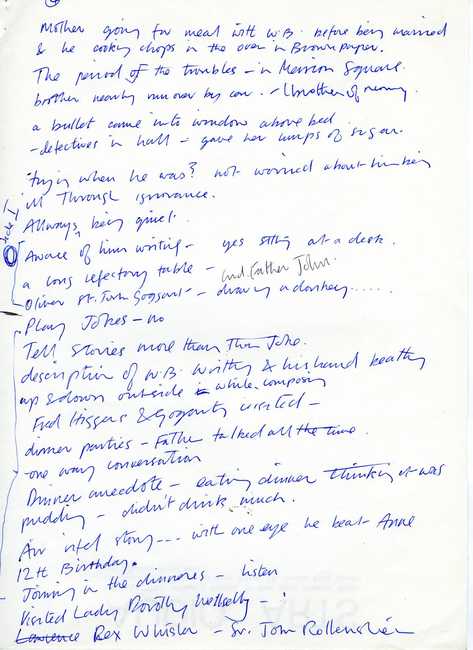 Mother going for meal with W.B. before being married
& he cooking chops in the oven in Brown paper.
The period of the troubles – in Merrion Square.
brother nearly run over by car. – brother of nanny.
a bullet came into window above bed
– detectives in hall – gave her lumps of sugar.
trying when he was? not worried about him being
ill Through ignorance.
Allways being quiet.
Side 1
Aware of him writing – yes sitting at a desk.
a long refectory table – and Father John.
Oliver St. John Goggart – drawing a donkey.....
Play Jokes – no
Tell stories more than Joke.
description of W.B. writing & his hand beating
up & down outside while composing
Fred Higgens & Gogarty visited –
dinner parties – Father talked all the time.
one way conversation
Dinner anecdote – eating dinner thinking it was
pudding – didn't drink much.
Air rifel story... with one eye he beat Anne
12th Birthday.
Joining in the dinneres – listen
Visited Lady Dorothy Wellesely
Lawrence Rex Whisler – Sr. John Rothenstien